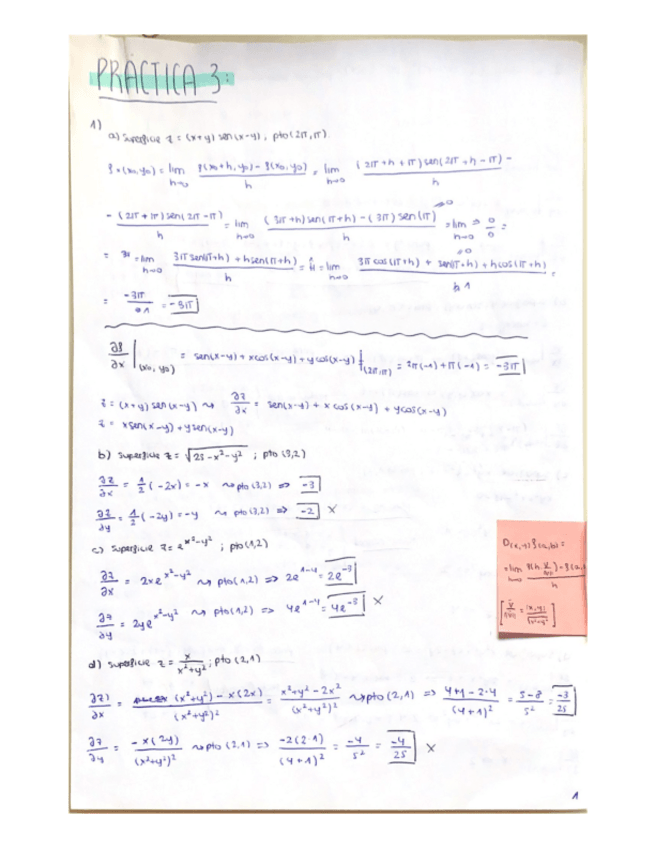 PRÁCTICA 3:
1)
a) Superficie z = (x+y) sen(x-y), pto (2π, π).
f_x(x₀,y₀) = lim_{h→0} (f(x₀+h, y₀) - f(x₀,y₀))/h = lim_{h→0} ((2π+h+π) sen(2π+h-π) -)/h
- ((2π+π) sen(2π-π))/h = lim_{h→0} ((3π+h) sen(π+h) - (3π) sen(π))/h = lim_{h→0} ⇒ 0/0 =
= lim_{h→0} (3π sen(π+h) + h sen(π+h))/h = lim_{h→0} (3π cos(π+h) + sen(π+h) + h cos(π+h))/1 =
= -3π/1 = -3π
∂f/∂x |(x₀, y₀) = sen(x-y) + x cos(x-y) + y cos(x-y) |(2π,π) = 2π(-1) + π(-1) = -3π
z = (x+y) sen(x-y) ⇝ ∂z/∂x = sen(x-y) + x cos(x-y) + y cos(x-y)
z = x sen(x-y) + y sen(x-y)
b) Superficie z = √(25-x²-y²) ; pto (3,2)
∂z/∂x = 1/2 (-2x) = -x ⇝ pto (3,2) ⇒ -3
∂z/∂y = 1/2 (-2y) = -y ⇝ pto (3,2) ⇒ -2 ×
c) Superficie z = e^{x²-y²} ; pto (1,2)
∂z/∂x = 2xe^{x²-y²} ⇝ pto (1,2) ⇒ 2e^{1-4} = 2e^{-3}
∂z/∂y = 2ye^{x²-y²} ⇝ pto (1,2) ⇒ 4e^{1-4} = 4e^{-3} ×
d) Superficie z = x/(x²+y²) ; pto (2,1)
∂z/∂x = ((x²+y²) - x(2x))/(x²+y²)² = (x²+y²-2x²)/(x²+y²)² ⇝ pto (2,1) ⇒ (4+1-2·4)/(4+1)² = (5-8)/5² = -3/25
∂z/∂y = (-x(2y))/(x²+y²)² ⇝ pto (2,1) ⇒ (-2(2·1))/(4+1)² = -4/5² = -4/25 ×
1